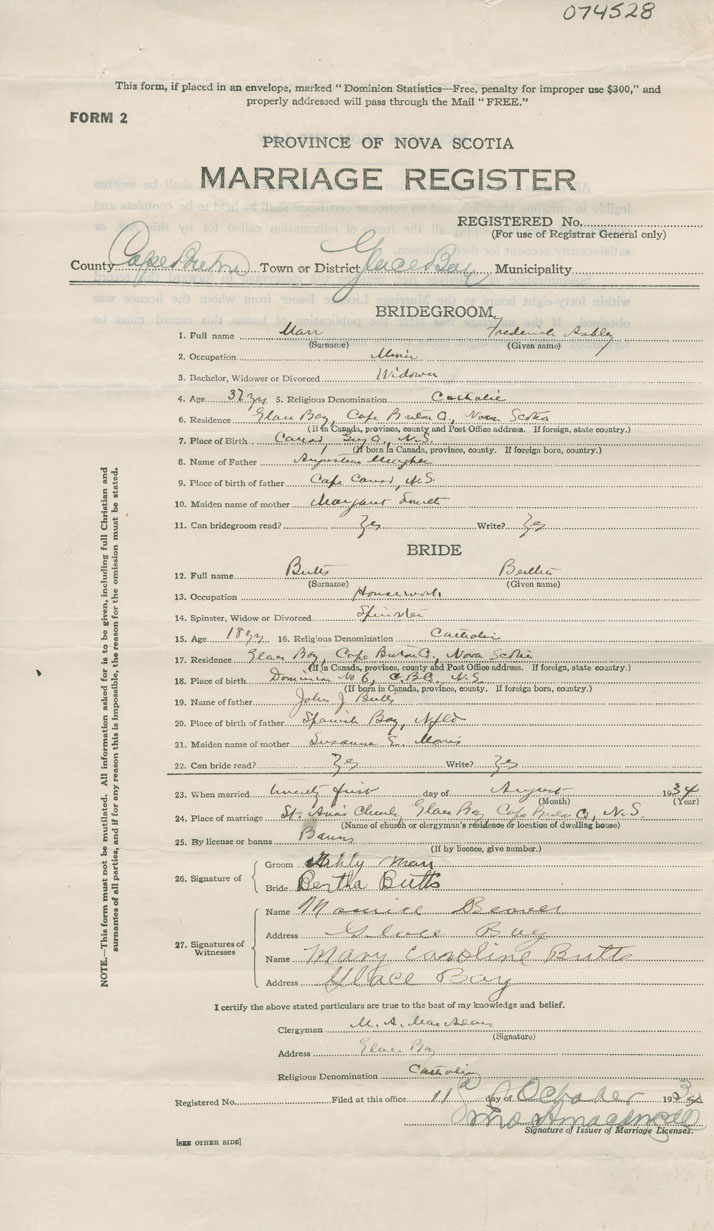 074528
This form, if placed in an envelope, marked "Dominion Statistics—Free, penalty for improper use $300," and
properly addressed will pass through the Mail "FREE."
FORM 2
PROVINCE OF NOVA SCOTIA
MARRIAGE REGISTER
REGISTERED No.
(For use of Registrar General only)
County Cape Breton Town or District Glace Bay Municipality
BRIDEGROOM.
1. Full name Marr Frederick Ashley
(Surname) (Given name)
2. Occupation Miner
3. Bachelor, Widower or Divorced Widower
4. Age 37 yrs 5. Religious Denomination Catholic
6. Residence Glace Bay, Cape Breton Co., Nova Scotia
(If in Canada, province, county and Post Office address. If foreign, state country.)
7. Place of Birth Canso, Guy Co., N.S.
(If born in Canada, province, county. If foreign born, country.)
8. Name of Father
9. Place of birth of father Cape Canso, N.S.
10. Maiden name of mother Margaret
11. Can bridegroom read? Yes Write? Yes
BRIDE
12. Full name Butts Bertha
(Surname) (Given name)
13. Occupation Housework
14. Spinster, Widow or Divorced Spinster
15. Age 18 yrs 16. Religious Denomination Catholic
17. Residence Glace Bay, Cape Breton Co., Nova Scotia
(If in Canada, province, county and Post Office address. If foreign, state country.)
18. Place of birth Dominion No 6, C.B.C., N.S.
(If born in Canada, province, county. If foreign born, country.)
19. Name of father John J Butts
20. Place of birth of father Spanish Bay, Nfld
21. Maiden name of mother Susanna E. Morris
22. Can bride read? Yes Write? Yes
23. When married twenty first day of August 1934
(Month) (Year)
24. Place of marriage St. Ann's Church, Glace Bay, Cape Breton Co., N.S.
(Name of church or clergyman's residence or location of dwelling house)
25. By license or banns Banns
(If by licence, give number.)
26. Signature of
Groom Ashly Marr
Bride Bertha Butts
27. Signatures of Witnesses
Name Maurice Beaver
Address Glace Bay
Name Mary Caroline Butts
Address Glace Bay
I certify the above stated particulars are true to the best of my knowledge and belief.
Clergyman M. A.
(Signature)
Address Glace Bay
Religious Denomination Catholic
Registered No. Filed at this office 11 day of October 193
Mrs
Signature of Issuer of Marriage Licenses.
[SEE OTHER SIDE]
NOTE.—This form must not be mutilated. All information asked for is to be given, including full Christian and
surnames of all parties, and if for any reason this is impossible, the reason for the omission must be stated.